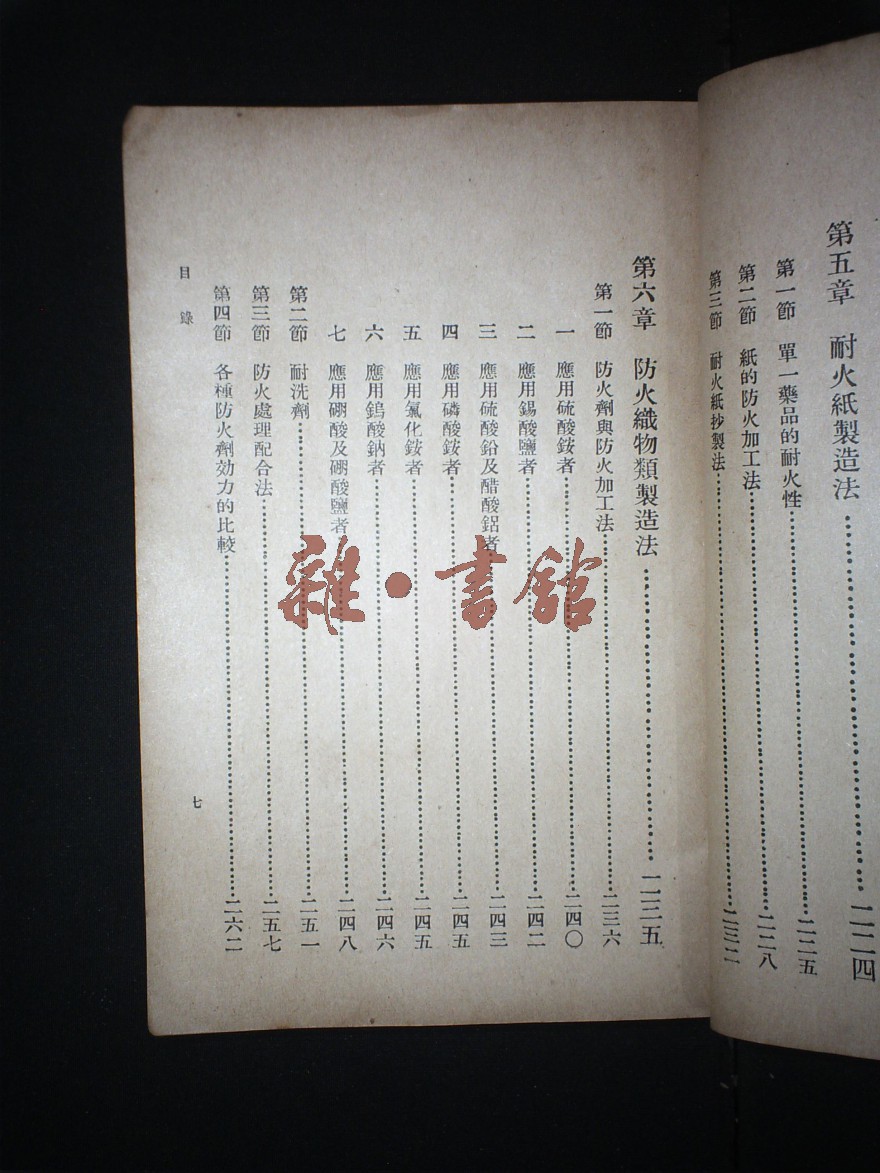 第五章　耐火紙製造法……二二四
第一節　單一藥品的耐火性……二二五
第二節　紙的防火加工法……二二八
第三節　耐火紙抄製法……二三二
第六章　防火織物類製造法……二三五
第一節　防火劑與防火加工法……二三六
一　應用硫酸銨者……二四〇
二　應用錫酸鹽者……二四二
三　應用硫酸鉛及醋酸鋁者……二四三
四　應用磷酸銨者……二四五
五　應用氯化銨者……二四五
六　應用鎢酸鈉者……二四六
七　應用硼酸及硼酸鹽者……二四八
第二節　耐洗劑……二五一
第三節　防火處理配合法……二五七
第四節　各種防火劑効力的比較……二六二
目錄
七
雜·書館